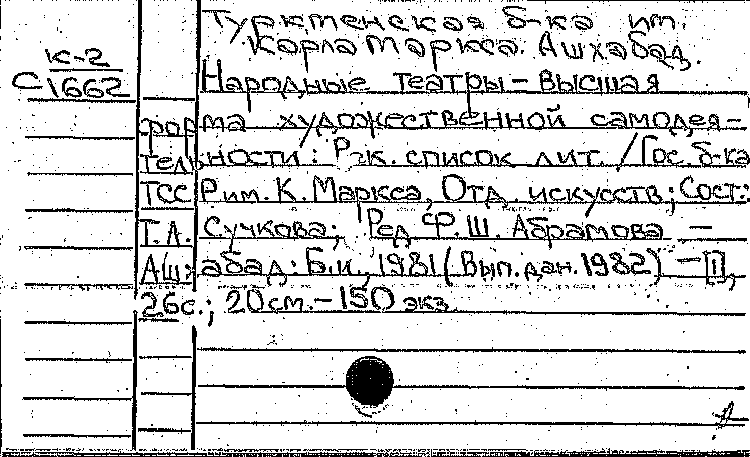 Туркменская б-ка им.
Карла Маркса. Ашхабад.
К-2
С 1662
Народные театры – высшая
форма художественной самодея-
тельности: Рек. список лит. / Гос. б-ка
ТССР им. К. Маркса, Отд. искусств; Сост.:
Т.А. Сучкова; Ред. Ф.Ш. Абрамова —
Ашхабад: Б.и., 1981 (Вып. дан. 1982) — [1],
26с.; 20см. – 150 экз.